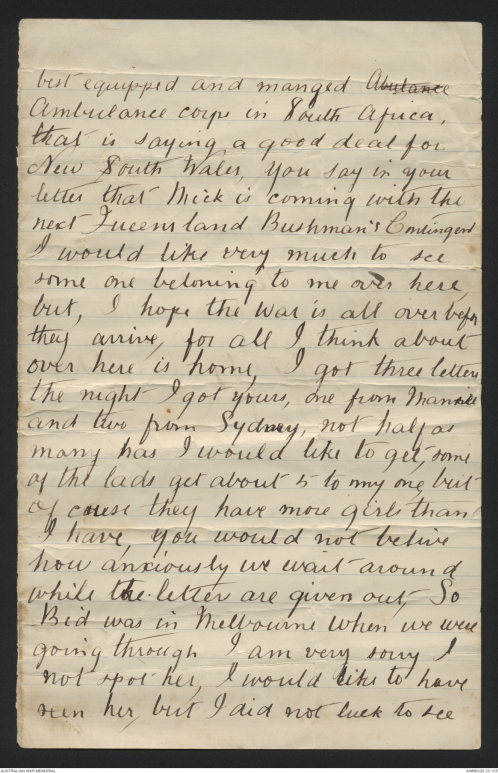 best equipped and manged
Ambulance corps in South Africa,
that is saying a good deal for
New South Wales, you say in your
letter that Mick is coming with the
next Queensland Bushman's Contingent
I would like very much to see
some one beloning to me over here,
but, I hope the war is all over befor
they arrive, for all I think about
over here is home, I got three letters
the night I got yours, one from
and two from Sydney, not half as
many has I would like to get, some
of the lads get about 5 to my one, but
of couse they have more girls than
I have, you would not belive
how anxiously we wait around
while the letter are given out, So
Bid was in Melbourne when we were
going through I am very sorry I
not spot her, I would like to have
seen her, but I did not luck to see
AUSTRALIAN WAR MEMORIAL